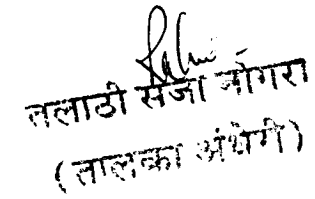 तलाठी सजा नोंगरा
(तालुका अंधेरी)